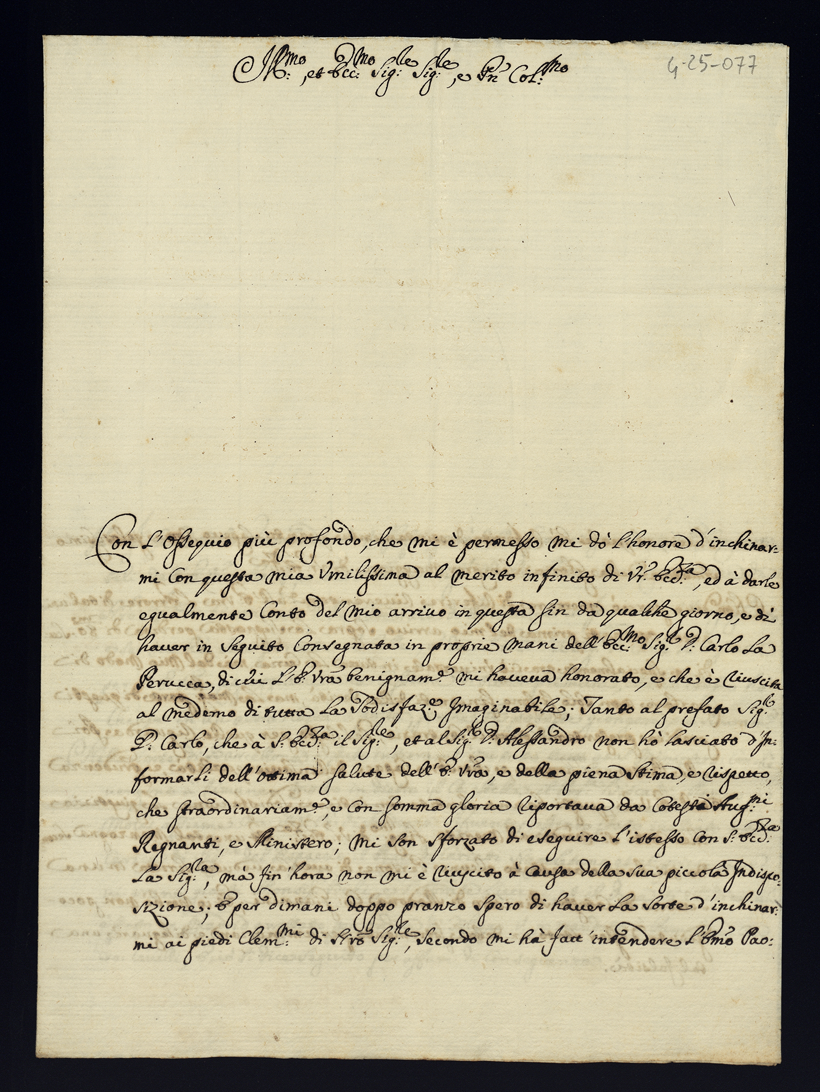 Ill:mo, et Ecc:mo Sig:le Sig:le, e Pñ Col:mo
G-25-077
Con L'Ossequio più profondo, che mi è permesso mi dò l'honore d'inchinar-
mi con questa mia Vmilissima al merito infinito di Vr̃ Ecc:za, ed à darle
egualmente Conto del mio arriuo in questa sin da qualche giorno, e di
hauer in seguito Consegnata in proprie mani dell'Ecc:mo Sig:le D: Carlo La
Perucca, di cui L'E: Vrã benignam:e mi haueua honorato, e che è riuscita
al medemo di tutta La Sodisfaz:e Imaginabile; Tanto al prefato Sig:le
D: Carlo, che à S: Ecc:za il Sig:le, et al Sig:le D: Alessandro non hò lasciato d'In-
formarli dell'ottima salute dell'E: Vrã, e della piena stima, e rispetto,
che straordinariam:e, e con somma gloria riportaua da Cotesti Aug:mi
Regnanti, e Ministero; Mi son sforzato di eseguire L'istesso con S: Ecc:za
La Sig:la, mà fin'hora non mi è riuscito à causa della sua piccola Indispo-
sizione; E per dimani doppo pranzo spero di hauer La sorte d'inchinar-
mi ai piedi Clem:mi di Sig:le, secondo mi hà fatt'intendere L' Pao: